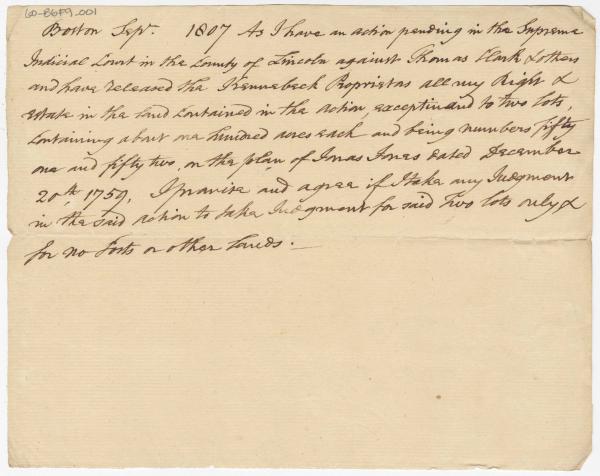 60-B6F9.001
Boston Sepr. 1807 As I have an action pending in the Supreme
Judicial Court in the County of Lincoln against Thomas Clark & others
and have released the Kennebeck Proprietors all my Right &
Estate in the Land Contained in the Action, except in and to two lots,
Containing about one hundred acres each and being numbers, fifty
one and fifty two, on the plan of Jonas Jones dated December
20th, 1759, I promise and agree if I take any Judgment
in the said action to take Judgment for said Two lots only &
for no Costs or other Lands. —